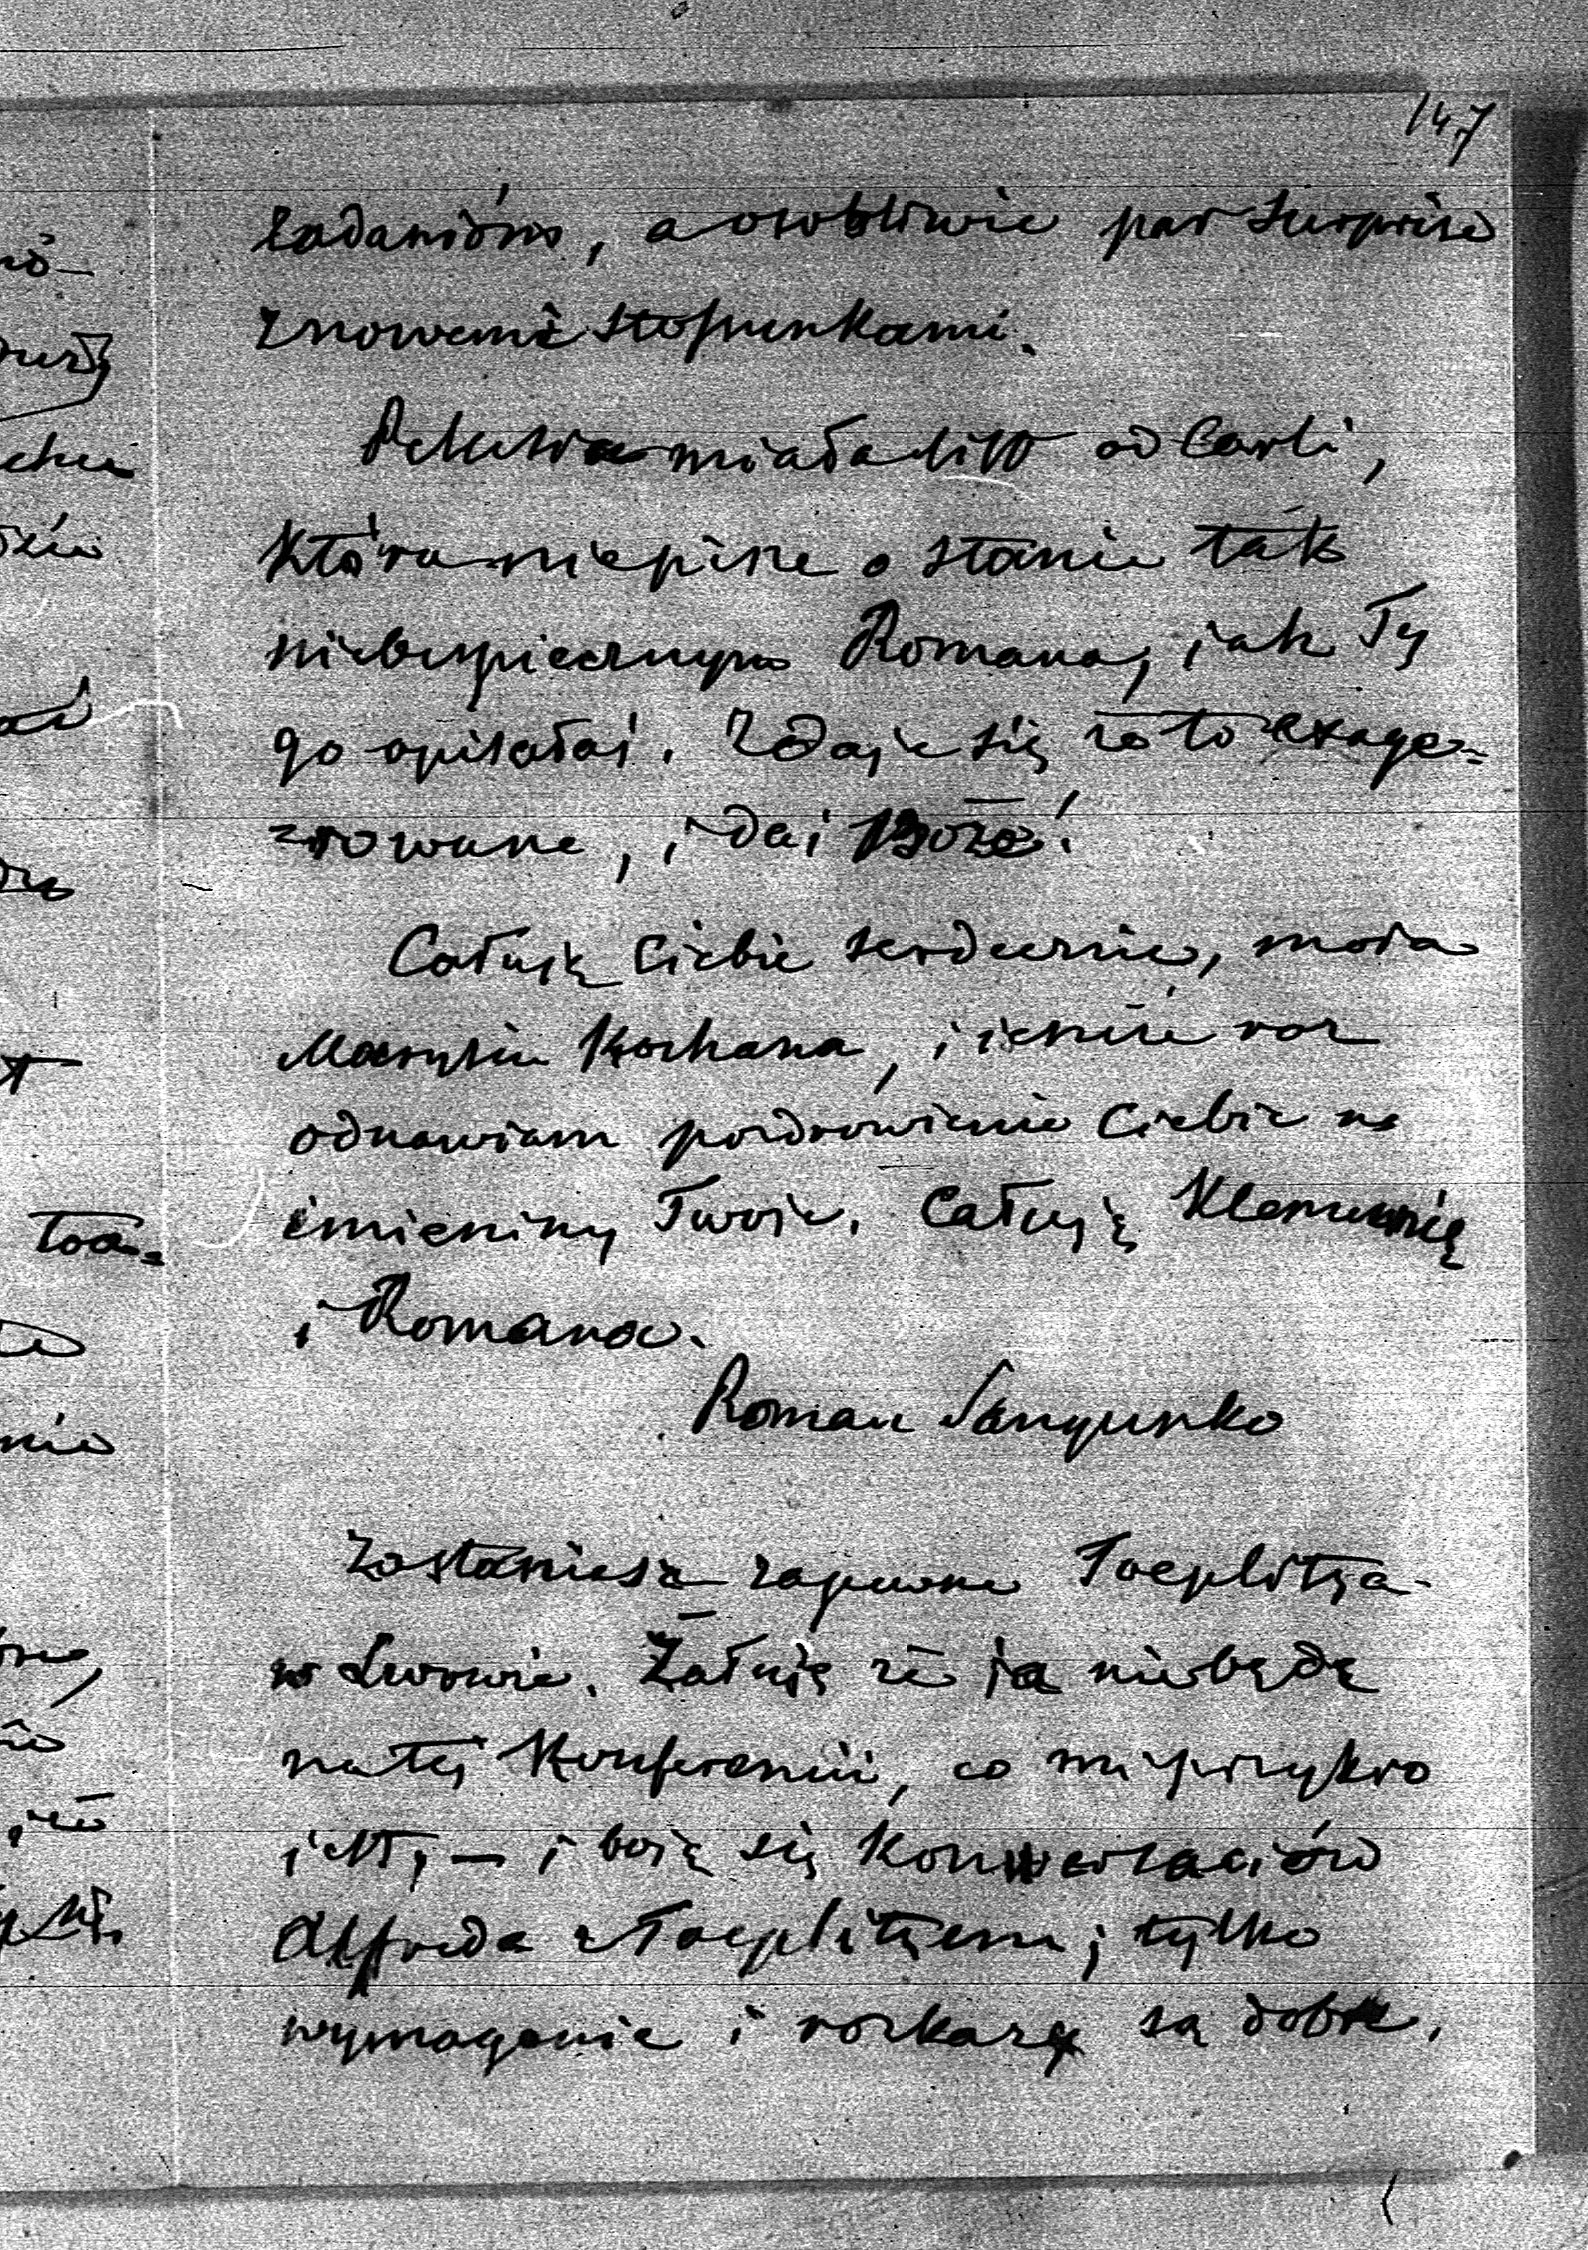 147
żądaniów, a osobliwie par surprise
z nowemi stosunkami.
miała list od Carli,
która nie pisze o stanie tak
niebezpiecznym Romana, jak Ty
go opisałaś. Zdaje się że to exage=
rowane, i daj Boże!
Całuję Ciebie serdecznie, moja
Marysiu Kochana, i jeszcze raz
odnawiam pozdrowienie Ciebie na
imieniny Twoje. Całuję Klemunię
i Romana.
Roman Sanguszko
Zostaniesz zapewne Toeplitza
w Lwowie. Żałuję że ja nie będę
na tej Konferencii, co mi przykro
jest; – i boję się konwersaciów
Alfreda z Toeplitzem; tylko
wymaganie i rozkazy są dobre.